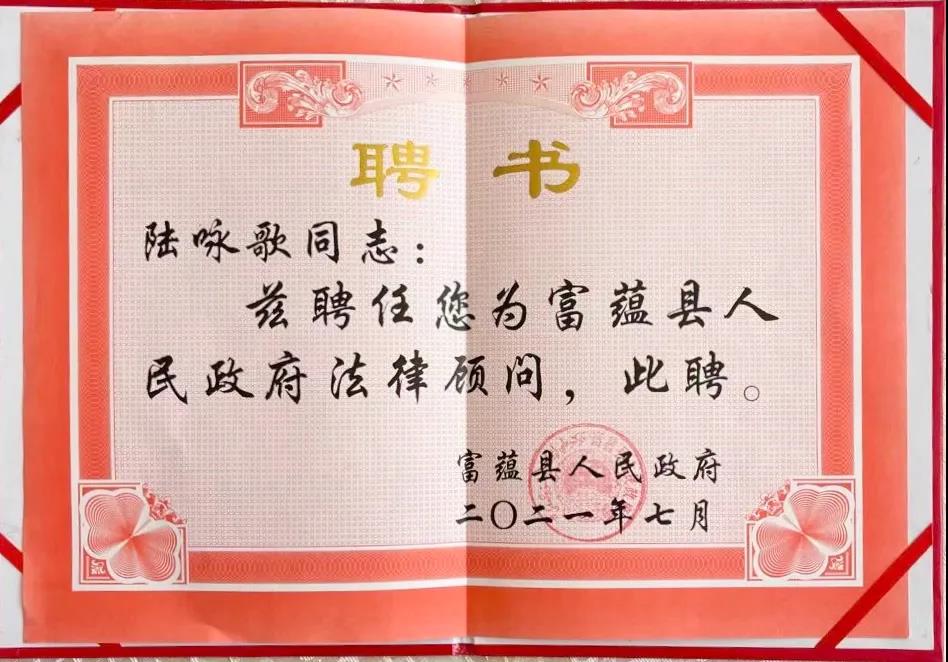 聘书
陆咏歌同志：
兹聘任您为富蕴县人
民政府法律顾问，此聘。
富蕴县人民政府
二〇二一年七月